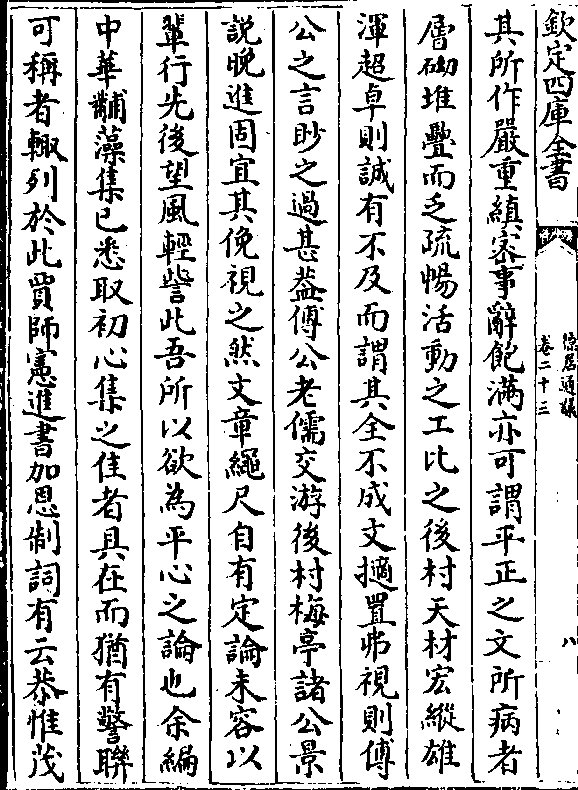 欽定四庫全書
隱居通議
卷二十三
八
其所作嚴重縝密事辭飽滿亦可謂平正之文所病者
層砌堆疊而乏疏暢活動之工比之後村天材宏縱雄
渾超卓則誠有不及而謂其全不成文擿置弗視則傅
公之言眇之過甚葢傅公老儒交游後村梅亭諸公景
說晚進固宜其俛視之然文章繩尺自有定論未容以
軰行先後望風輕訾此吾所以欲為平心之論也余編
中華黼藻集已悉取初心集之佳者具在而猶有警聯
可稱者輙列於此賈師憲進書加恩制詞有云恭惟茂